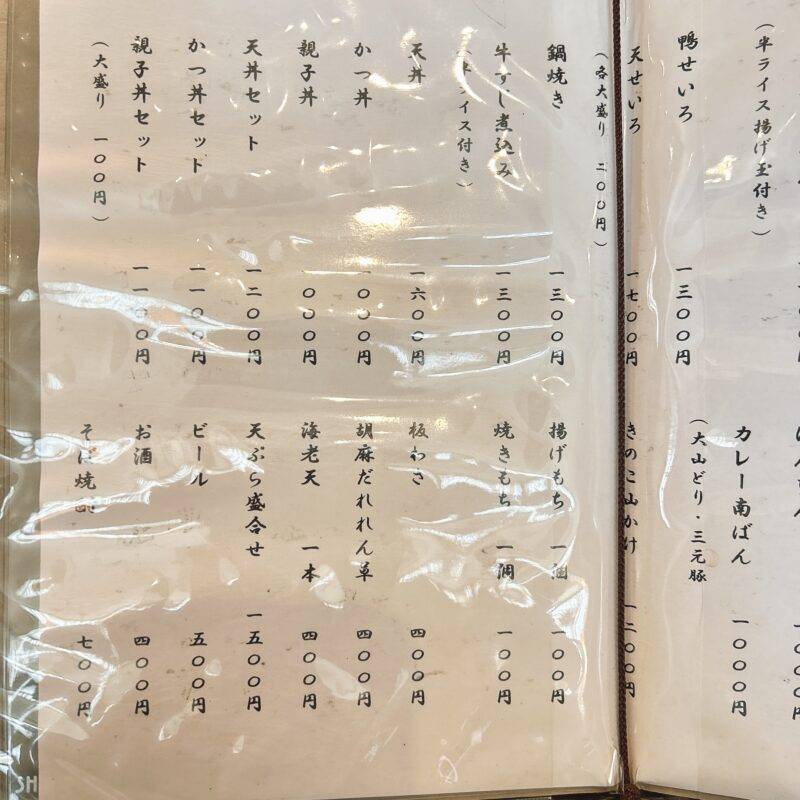 （半ライス揚げ玉付き）
鴨せいろ 一三〇〇円
天せいろ 一七〇〇円
（各大盛り 二〇〇円）
鍋焼き 一三〇〇円
牛すじ煮込み 一三〇〇円
（半ライス付き）
天丼 一六〇〇円
かつ丼 一〇〇〇円
親子丼 一〇〇〇円
天丼セット 一二〇〇円
かつ丼セット 一一〇〇円
親子丼セット 一一〇〇円
（大盛り 一〇〇円）
カレー南ばん 一〇〇〇円
（大山どり・三元豚
きのこ山かけ 一二〇〇円
揚げもち 一個 一〇〇円
焼きもち 一個 一〇〇円
板わさ 四〇〇円
胡麻だれれん草 四〇〇円
海老天 一本 四〇〇円
天ぷら盛合せ 一五〇〇円
ビール 五〇〇円
お酒 四〇〇円
そば焼酎 七〇〇円
SH